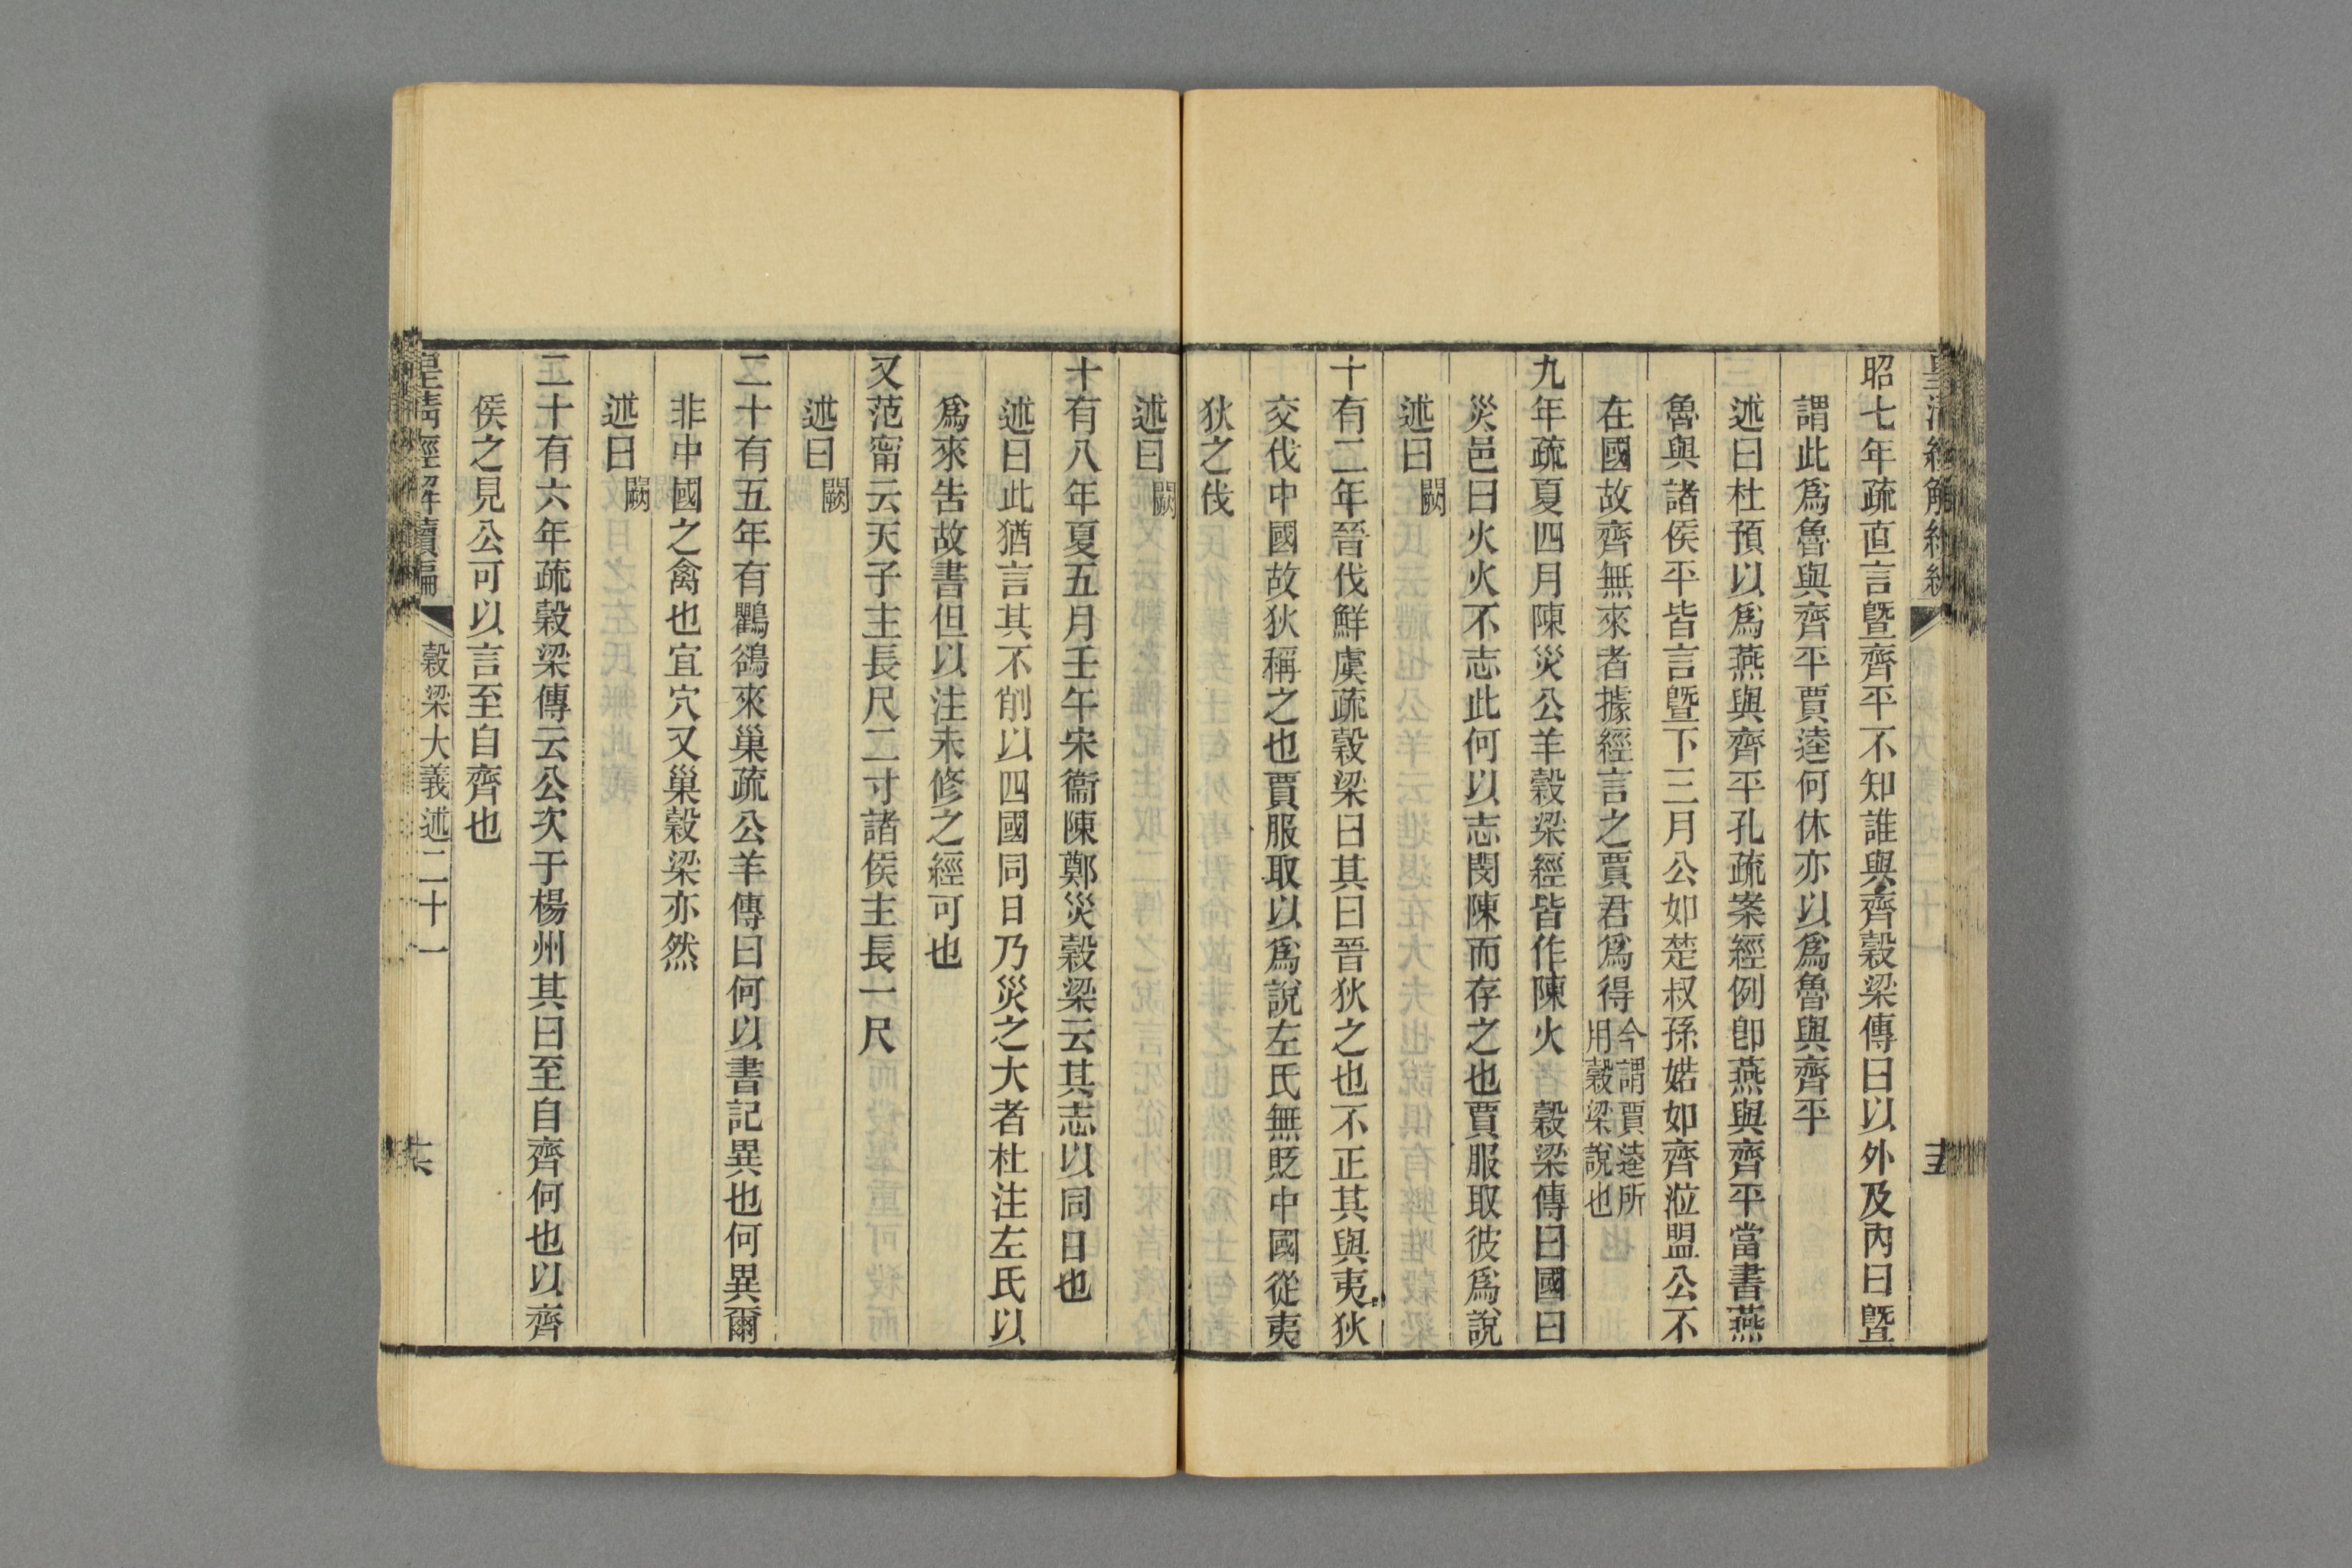 皇清經解續編
十五
昭七年疏直言曁齊平不知誰與齊穀梁傳曰以外及內曰曁
謂此爲魯與齊平賈逵何休亦以爲魯與齊平
述曰杜預以爲燕與齊平孔疏案經例卽燕與齊平當書燕
魯與諸侯平皆言曁下三月公如楚叔孫婼如齊涖盟公不
在國故齊無來者據經言之賈君爲得今謂賈逵所用穀梁說也
九年疏夏四月陳災公羊穀梁經皆作陳火 穀梁傳曰國曰
災邑曰火火不志此何以志閔陳而存之也賈服取彼爲說
述曰闕
十有二年晉伐鮮虞疏穀梁曰其曰晉狄之也不正其與夷狄
交伐中國故狄稱之也賈服取以爲說左氏無貶中國從夷
狄之伐
述曰闕
十有八年夏五月壬午宋衞陳鄭災穀梁云其志以同日也
述曰此猶言其不削以四國同日乃災之大者杜注左氏以
爲來告故書但以注未修之經可也
又范甯云天子主長尺二寸諸侯主長一尺
述曰闕
二十有五年有鸜鵒來巢疏公羊傳曰何以書記異也何異爾
非中國之禽也宜穴又巢穀梁亦然
述曰闕
二十有六年疏穀梁傳云公次于楊州其曰至自齊何也以齊
侯之見公可以言至自齊也
皇清經解續編
穀梁大義述二十一
十六